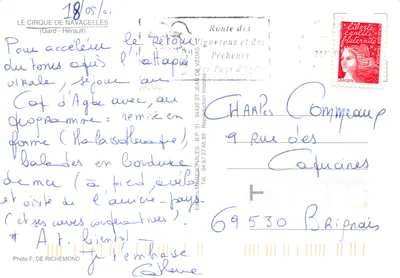 18/05/01
LE CIRQUE DE NAVACELLES
(Gard - Hérault)
Pour accélérer le retour
du tonus après l'attaque
virale, séjour au
Cap d'Agde avec, au
programme : remise en
forme (thalassothérapie),
balades en bordure
de mer (à pied, vélo)
et visite de l'arrière-pays
(et ses caves coopératives).
A bientôt
je t'embrasse
Photo F. DE RICHEMOND
Route des
Vignerons et des
Pêcheurs
Liberté
égalité
fraternité
LA POSTE
CHARLES Commeaux
9 rue des
Capucines
69530 Brignais